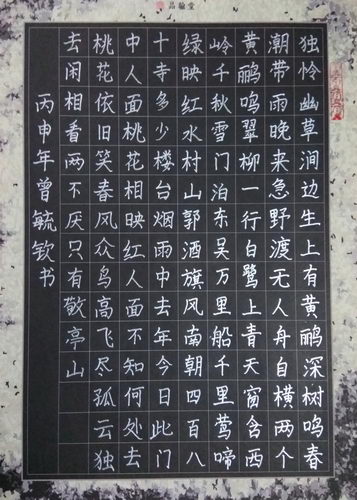 品翰堂
独怜幽草涧边生上有黄鹂深树鸣春
潮带雨晚来急野渡无人舟自横两个
黄鹂鸣翠柳一行白鹭上青天窗含西
岭千秋雪门泊东吴万里船千里莺啼
绿映红水村山郭酒旗风南朝四百八
十寺多少楼台烟雨中去年今日此门
中人面桃花相映红人面不知何处去
桃花依旧笑春风众鸟高飞尽孤云独
去闲相看两不厌只有敬亭山
丙申年曾毓钦书